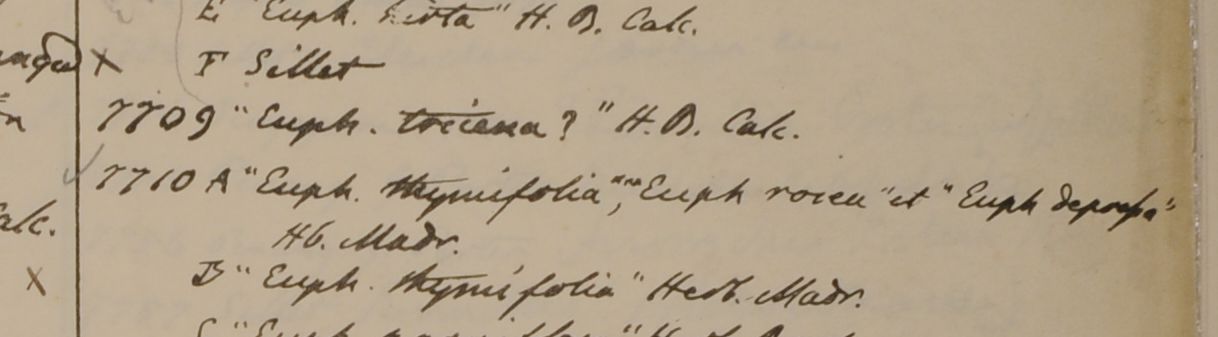 E "Euph. hirta" H. B. Calc.
x F Sillet
7709 "Euph. ? " H. B. Calc.
7710 A "Euph. thymifolia", "Euph rosea" et "Euph depressa"
alc. Hb. Madr.
x B "Euph. thymifolia" Herb. Madr.
C "Euph.